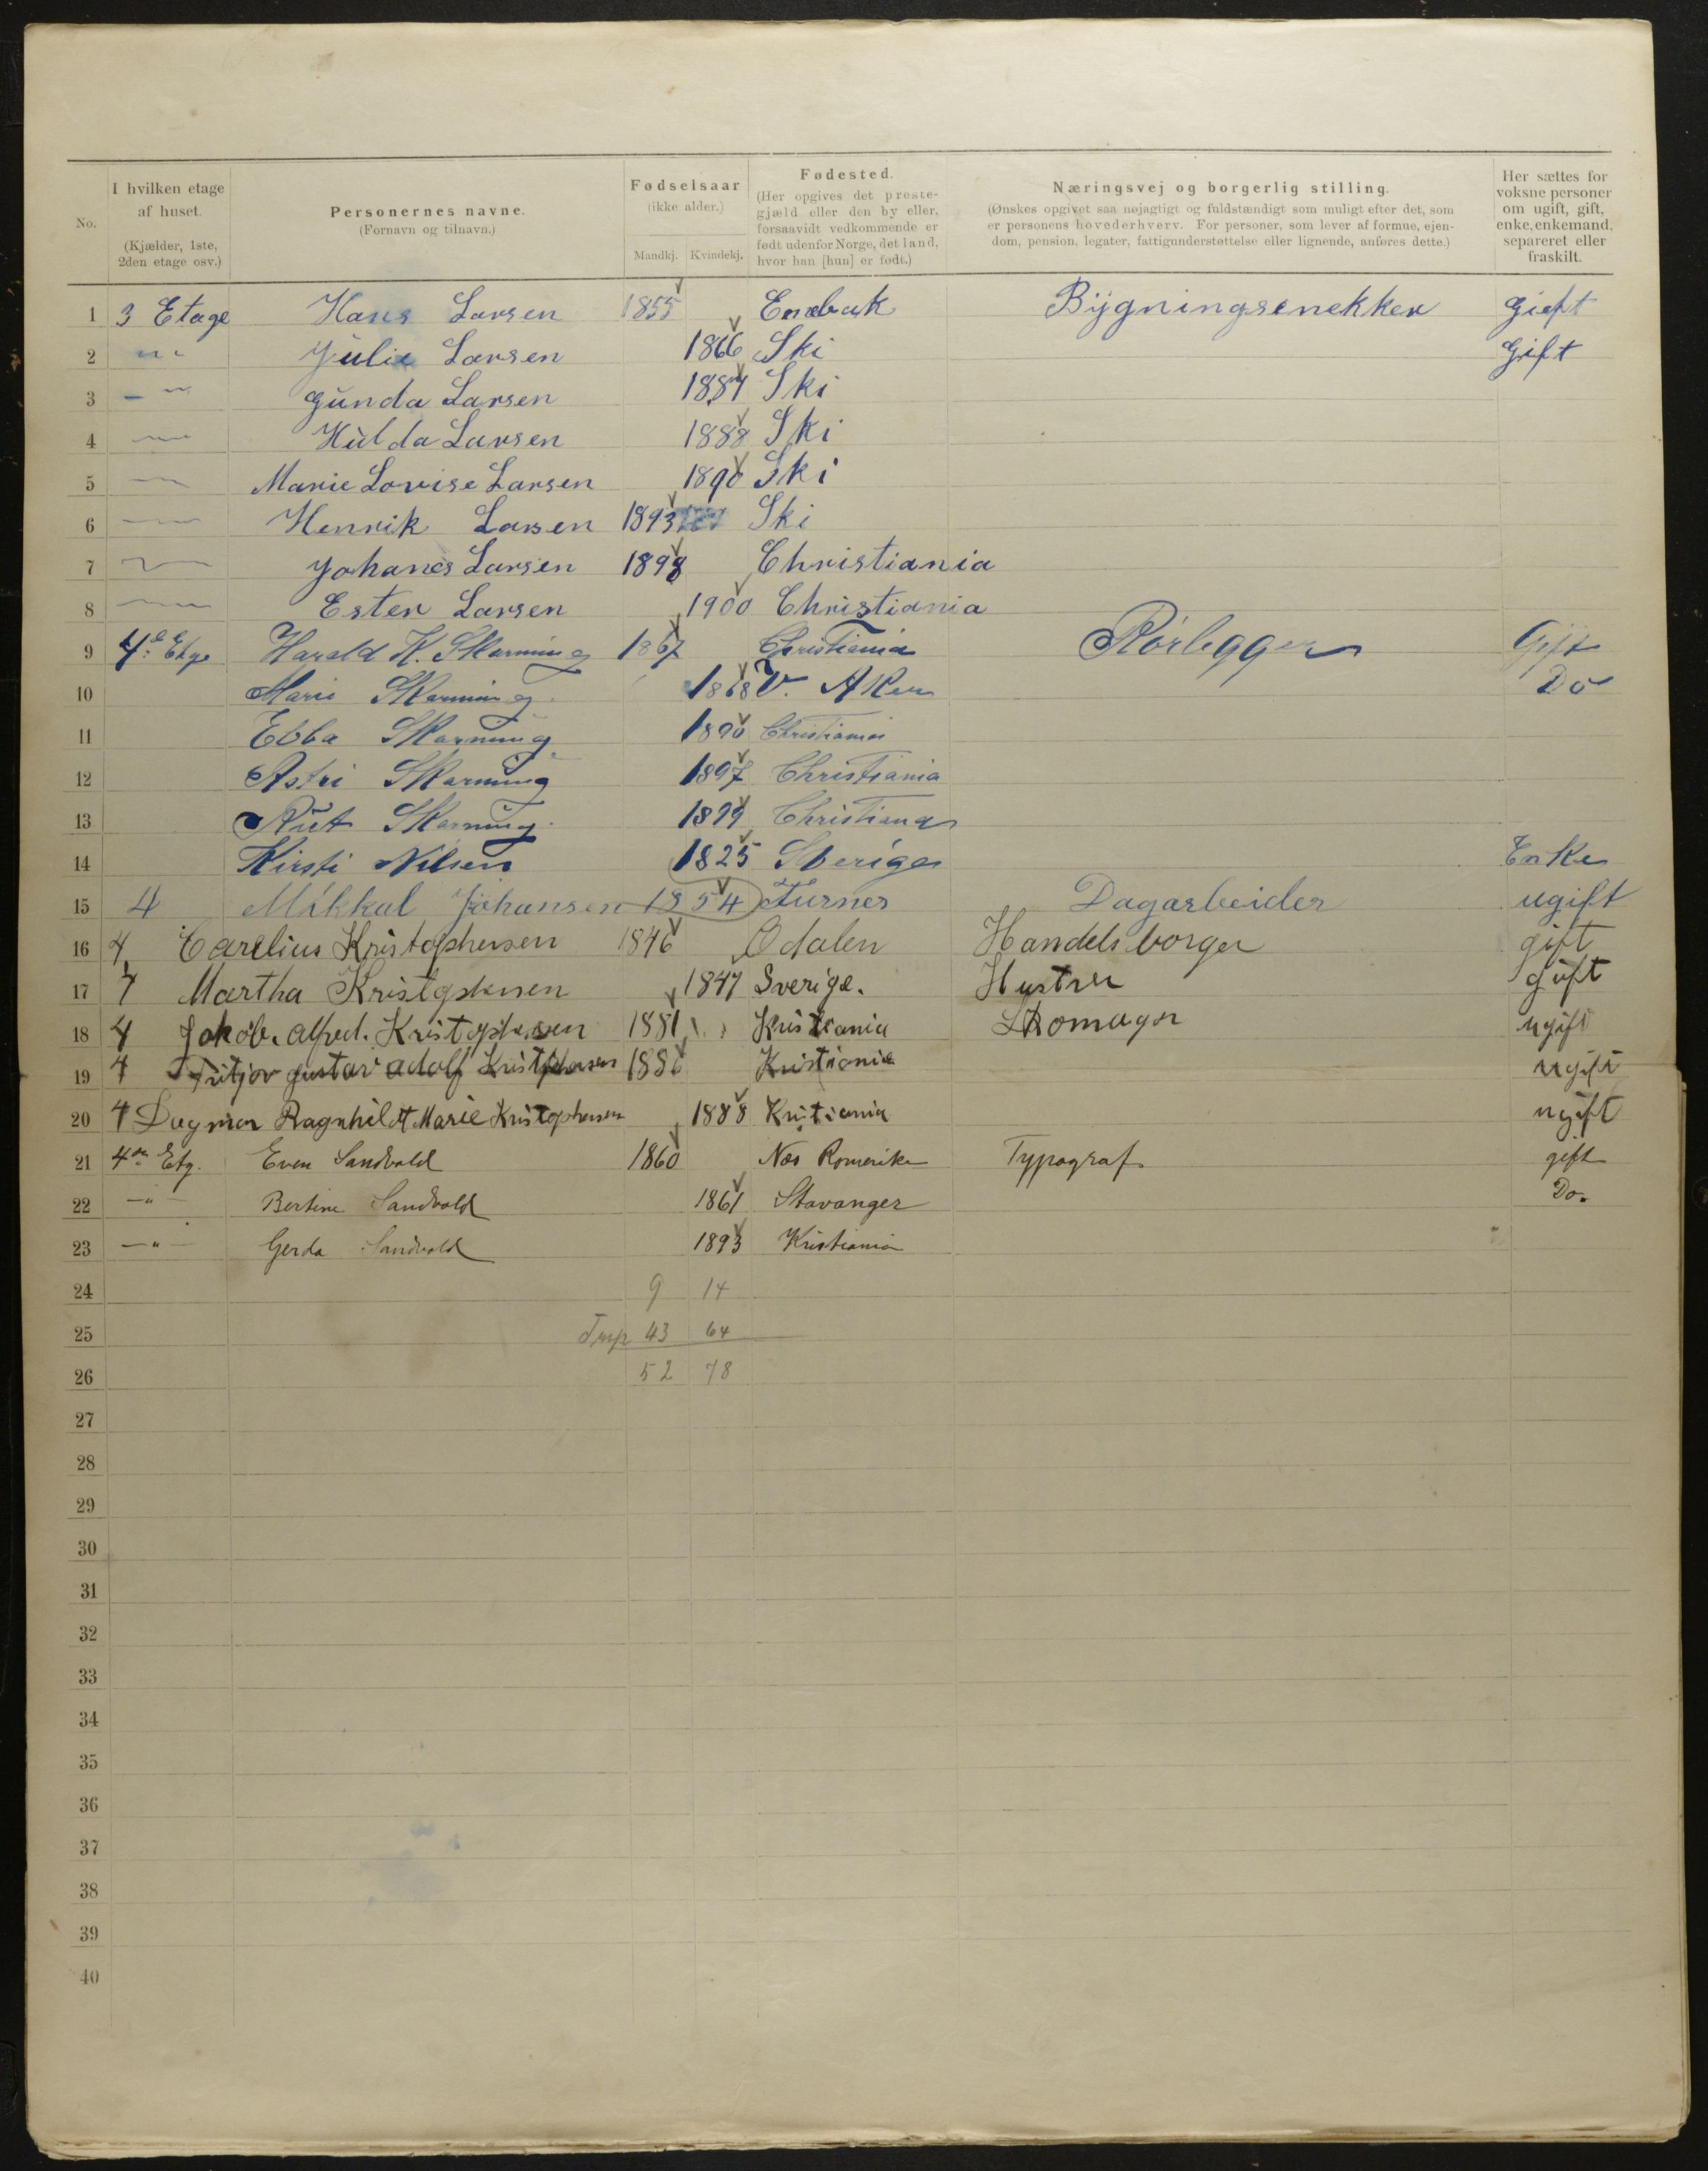 No. I hvilken etage af huset. (Kjælder, 1ste, 2den etage osv.) Personernes navne. (Fornavn og tilnavn.) Fødselsaar (ikke alder.) Mandkj. Kvindekj. Fødested. (Her opgives det prestegjæld eller den by eller, forsaavidt vedkommende er født udenfor Norge, det land, hvor han [hun] er født.) Næringsvej og borgerlig stilling. (Ønskes opgivet saa nøjagtigt og fuldstændigt som muligt efter det, som er personens hovederhverv. For personer, som lever af formue, ejendom, pension, legater, fattigunderstøttelse eller lignende, anføres dette.) Her sættes for voksne personer om ugift, gift, enke, enkemand, separeret eller fraskilt.
1 3 Etage Hans Larsen 1855 Enebak Bygningsenekker gieft
2 Julie Larsen 1866 Ski Gift
3 Gunda Larsen 1887 Ski
4 Hulda Larsen 1888 Ski
5 Marie Lovise Larsen 1890 Ski
6 Henrik Larsen 1893 Ski
7 Johanes Larsen 1898 Christiania
8 Ester Larsen 1900 Christiania
9 4de Etge Harald H. Skarning 1867 Christiania Rörlegger Gift
10 Marie Skarning 1868 V. Aker Do
11 Ebba Skarning 1890 Christiania
12 Astri Skarning 1897 Christiania
13 Rut Skarning 1899 Christiana
14 Kirsti Nilsen 1825 Sverige Enke
15 4 Mikkal Johansen 1854 Furnes Dagarbeider ugift
16 4 Carelius Kristophersen 1846 Odalen Handelsborger gift
17 4 Martha Kristophersen 1847 Sverige. Hustru gift
18 4 Jakob. Alfred. Kristophersen 1881 Kristiania Skomager ugift
19 4 Fritjov gustav adolf Kristophersen 1886 Kristiania ugift
20 4 Dagmar Ragnhildt Marie Kristophersen 1888 Kristiania ugift
21 4de Etg. Even Sandvold 1860 Nes Romerike Typograf gift
22 —"— Bertine Sandvold 1861 Stavanger Do.
23 —"— Gerda Sandvold 1893 Kristiania
24 9 14
25 43 64
26 52 78
27
28
29
30
31
32
33
34
35
36
37
38
39
40